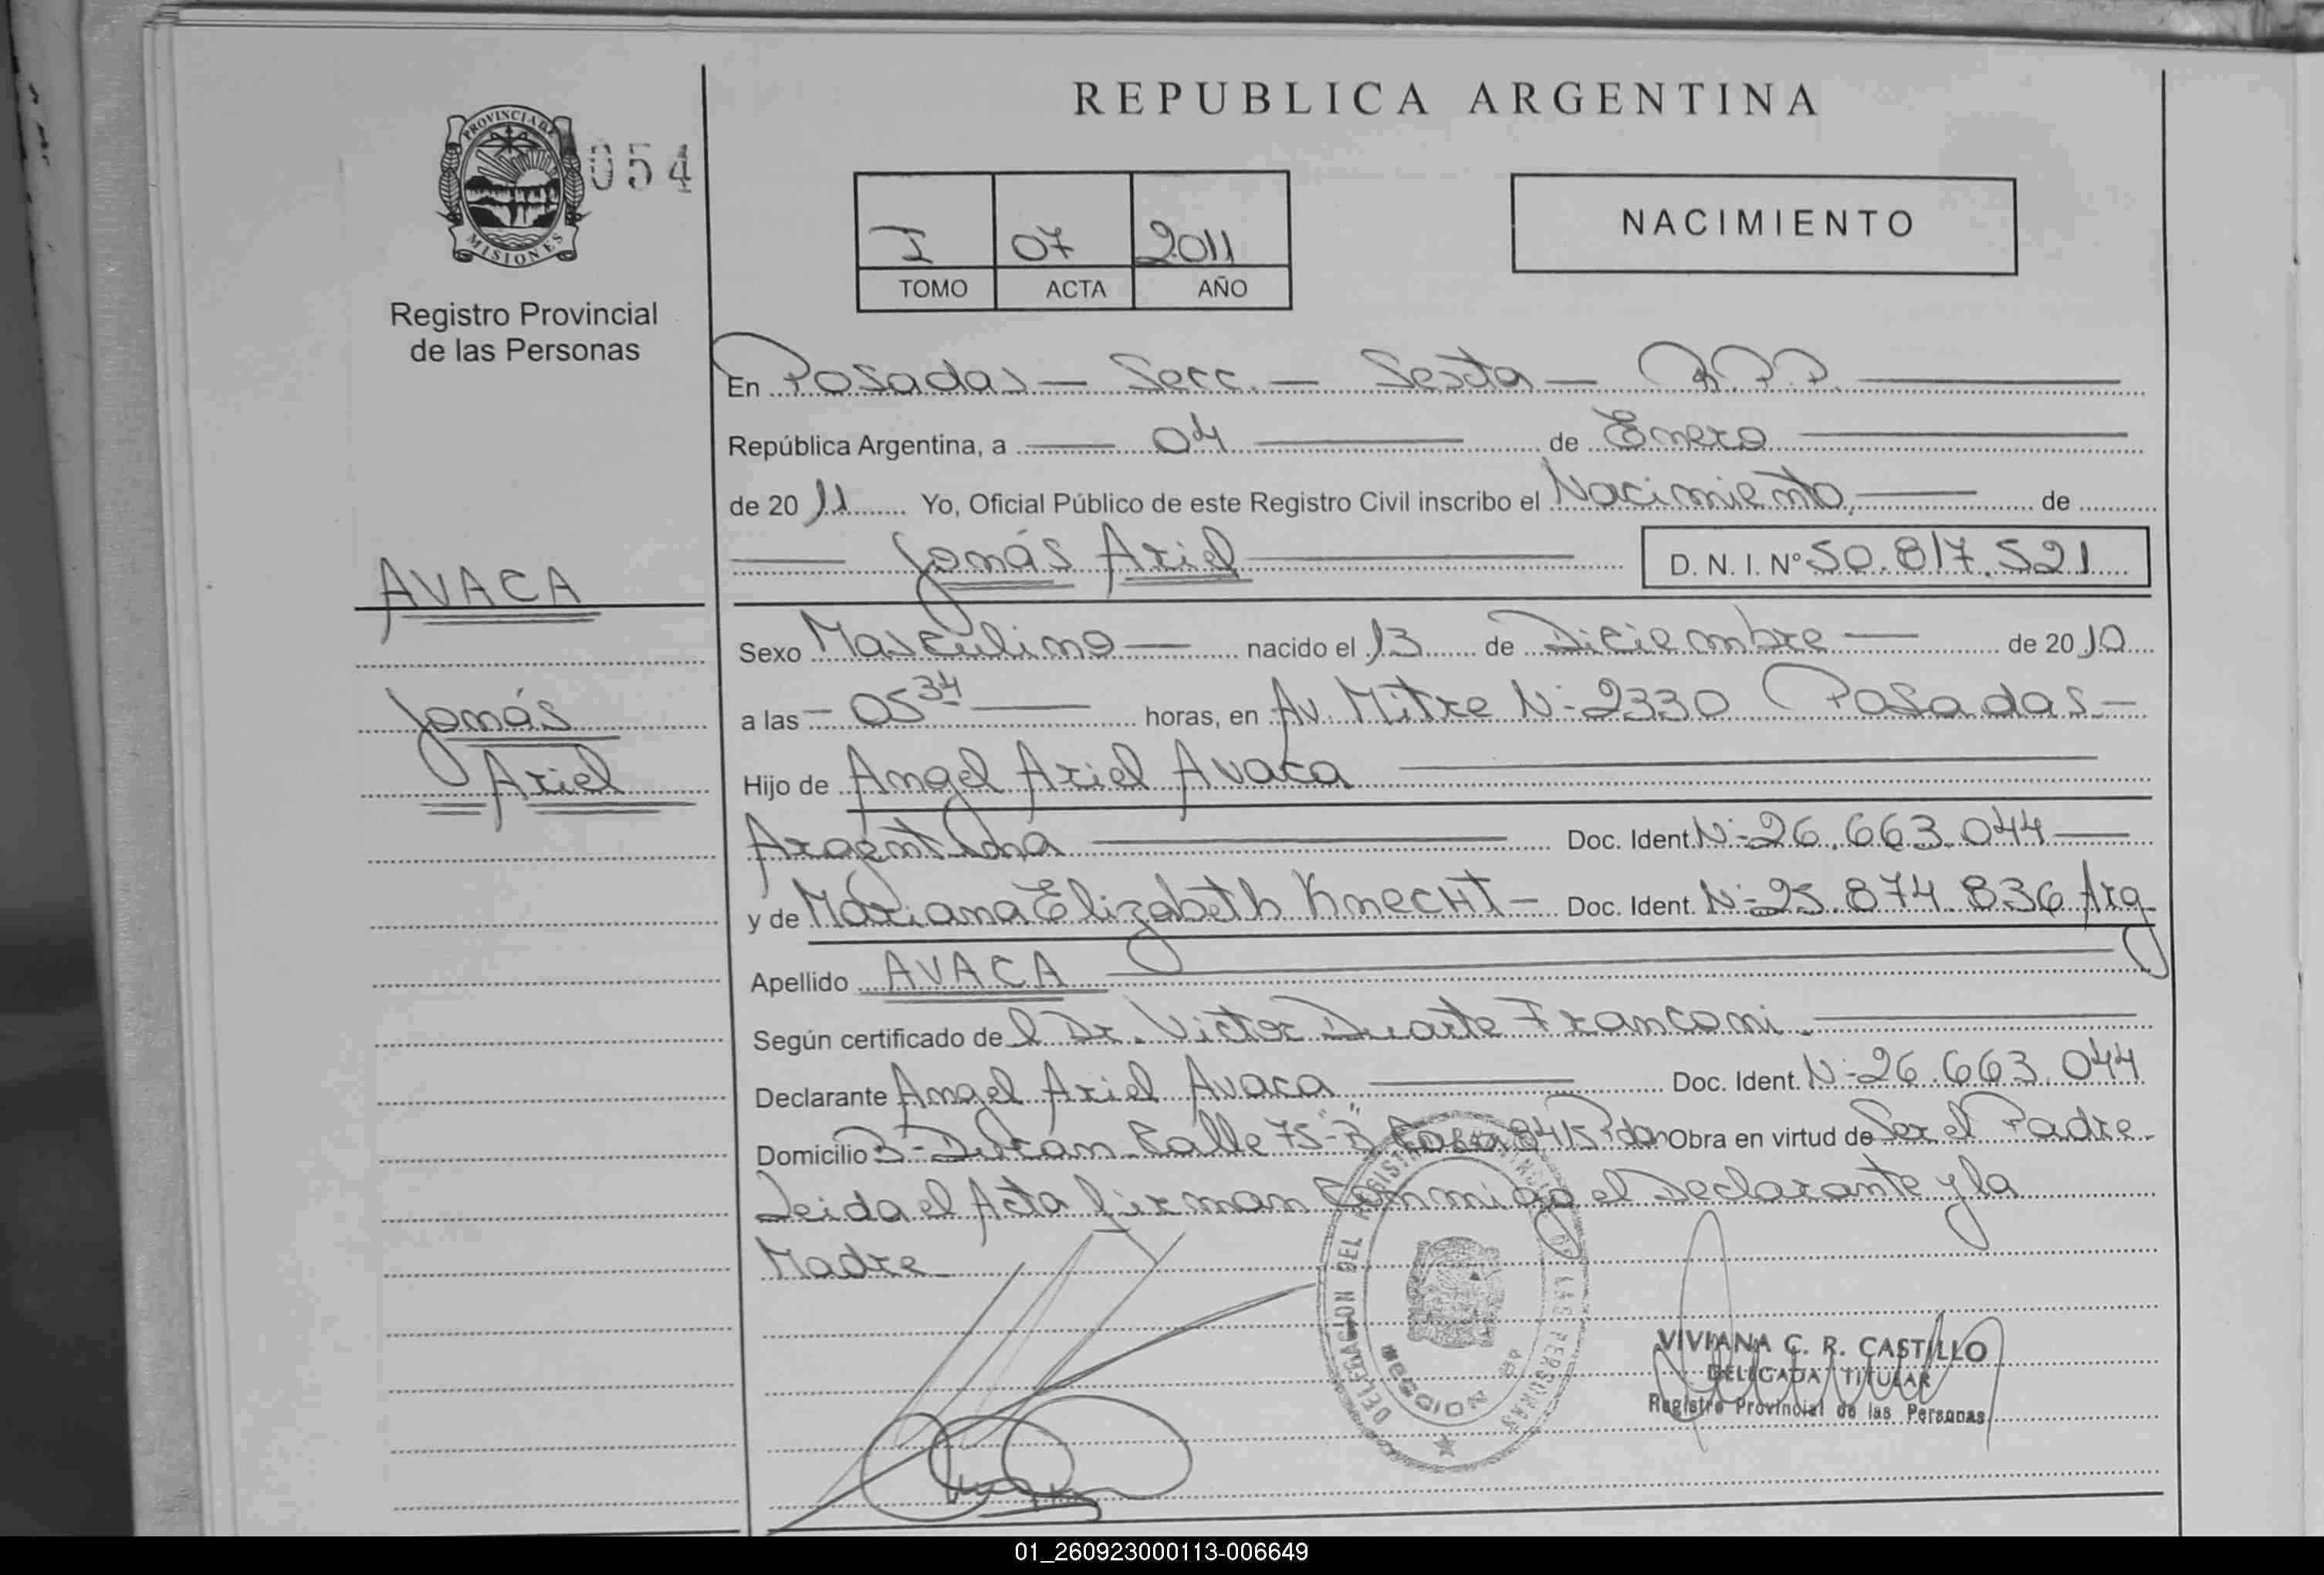 REPUBLICA ARGENTINA
PROVINCIA DE
MISIONES
054
Registro Provincial
de las Personas
I 07 2011
TOMO ACTA AÑO
NACIMIENTO
En Posadas — Secc. — Sexta — R.P.P.
República Argentina, a — 04 — de Enero
de 20 11 Yo, Oficial Público de este Registro Civil inscribo el Nacimiento, — de
Jonás Ariel D. N. I. Nº 50.817.521
AVACA
Jonás
Ariel
Sexo Masculino — nacido el 13 de Diciembre — de 20 10
a las — 05 34 — horas, en Av. Mitre N:-2330 Posadas —
Hijo de Angel Ariel Avaca
Argentina Doc. Ident. N:-26.663.044
y de Mariana Elizabeth KnecHt — Doc. Ident. N:-25.874.836 Arg
Apellido AVACA
Según certificado de l Dr. Victor Duarte Franconi.
Declarante Angel Ariel Avaca Doc. Ident. N:-26.663.044
Domicilio Calle 75-"B" Casa 8415 Obra en virtud de Ser el Padre
Leida el Acta firman Conmigo el Declarante y la
Madre
DELEGACION DEL REGISTRO PROVINCIAL DE LAS PERSONAS
VIVIANA C. R. CASTILLO
DELEGADA TITULAR
Registro Provincial de las Personas
01_260923000113-006649